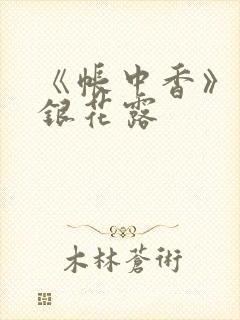 《帳中香》
銀花露
木林蒼術